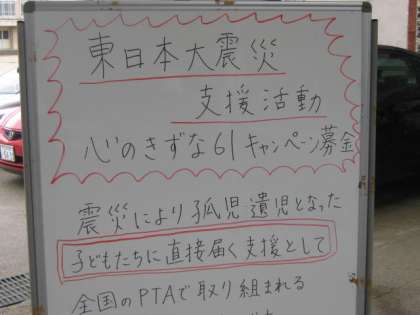 東日本大震災
支援活動
心のきずな61キャンペーン募金
震災により孤児遺児となった
子どもたちに直接届く支援として
全国のPTAで取り組まれる